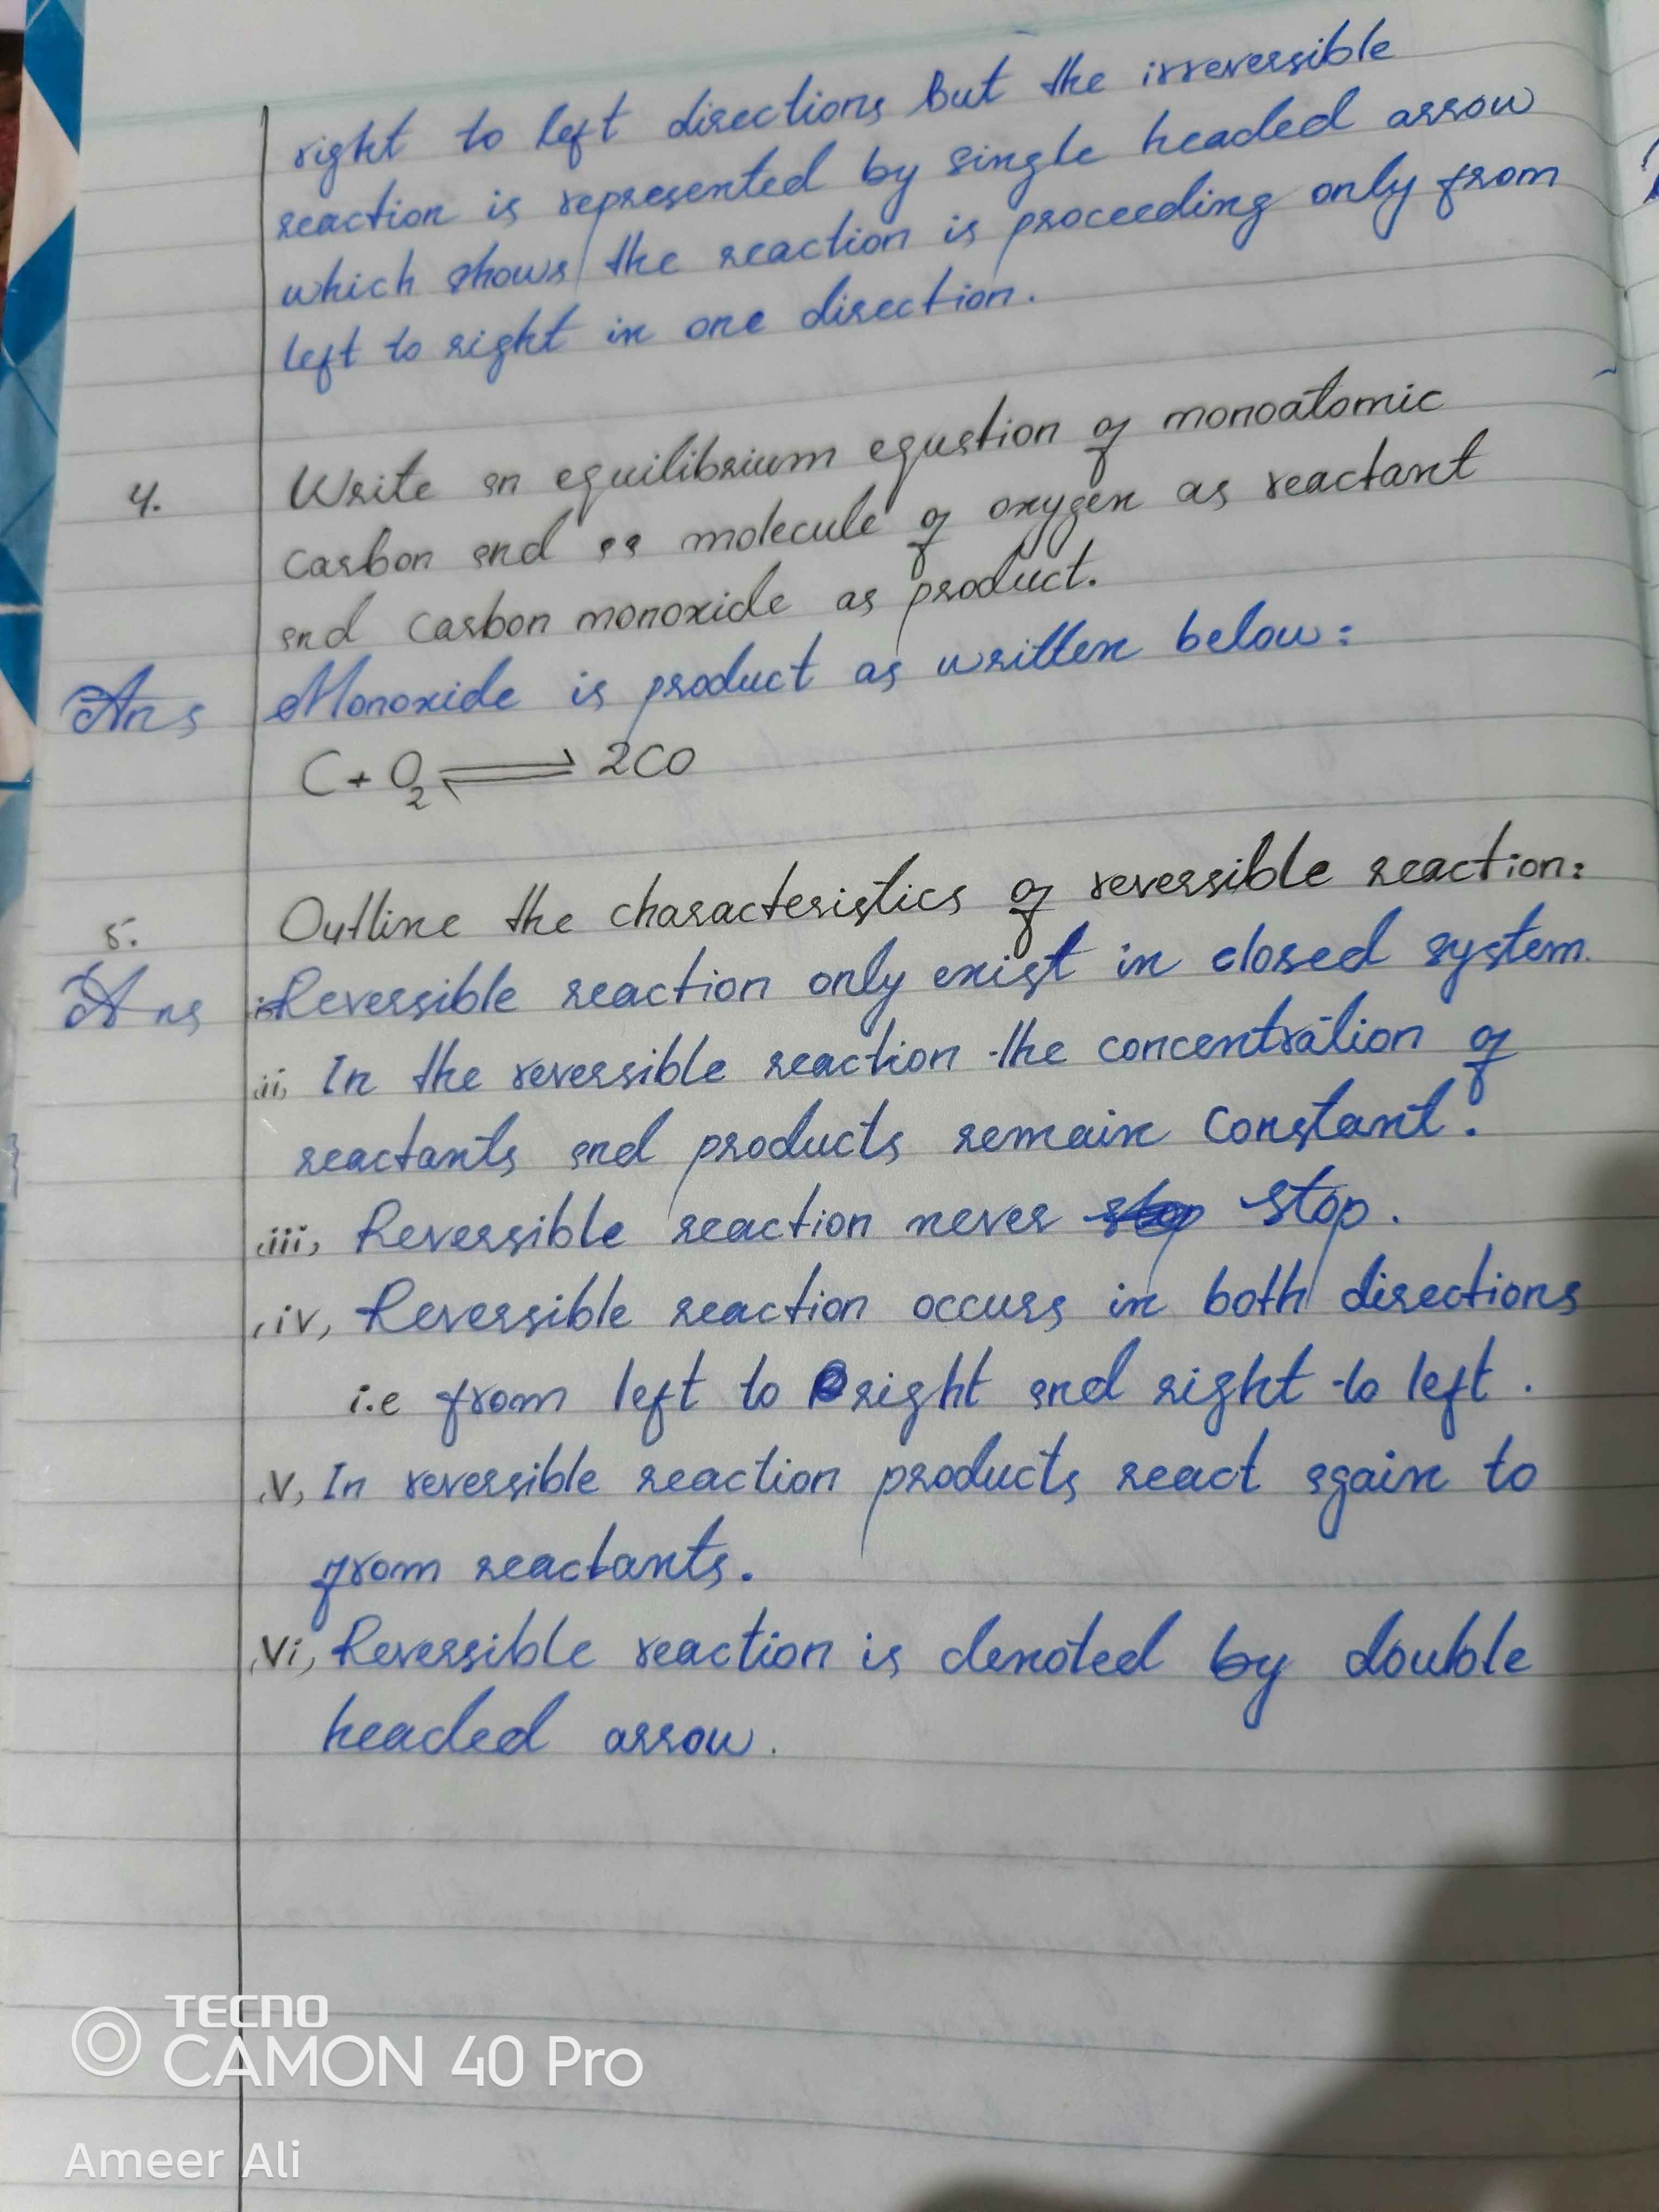 right to left directions but the irreversible
reaction is represented by single headed arrow
which shows the reaction is proceeding only from
left to right in one direction.
4. Write an equilibrium equation of monoatomic
carbon and as molecule of oxygen as reactant
and carbon monoxide as product.
Ans Monoxide is product as written below:
C + O₂ ⇌ 2CO
5. Outline the characteristics of reversible reaction:
Ans i. Reversible reaction only exist in closed system.
ii, In the reversible reaction the concentration of
reactants and products remain constant.
iii, Reversible reaction never stop.
iv, Reversible reaction occurs in both directions
i.e from left to right and right to left.
v, In reversible reaction products react again to
from reactants.
vi, Reversible reaction is denoted by double
headed arrow.
TECNO
CAMON 40 Pro
Ameer Ali